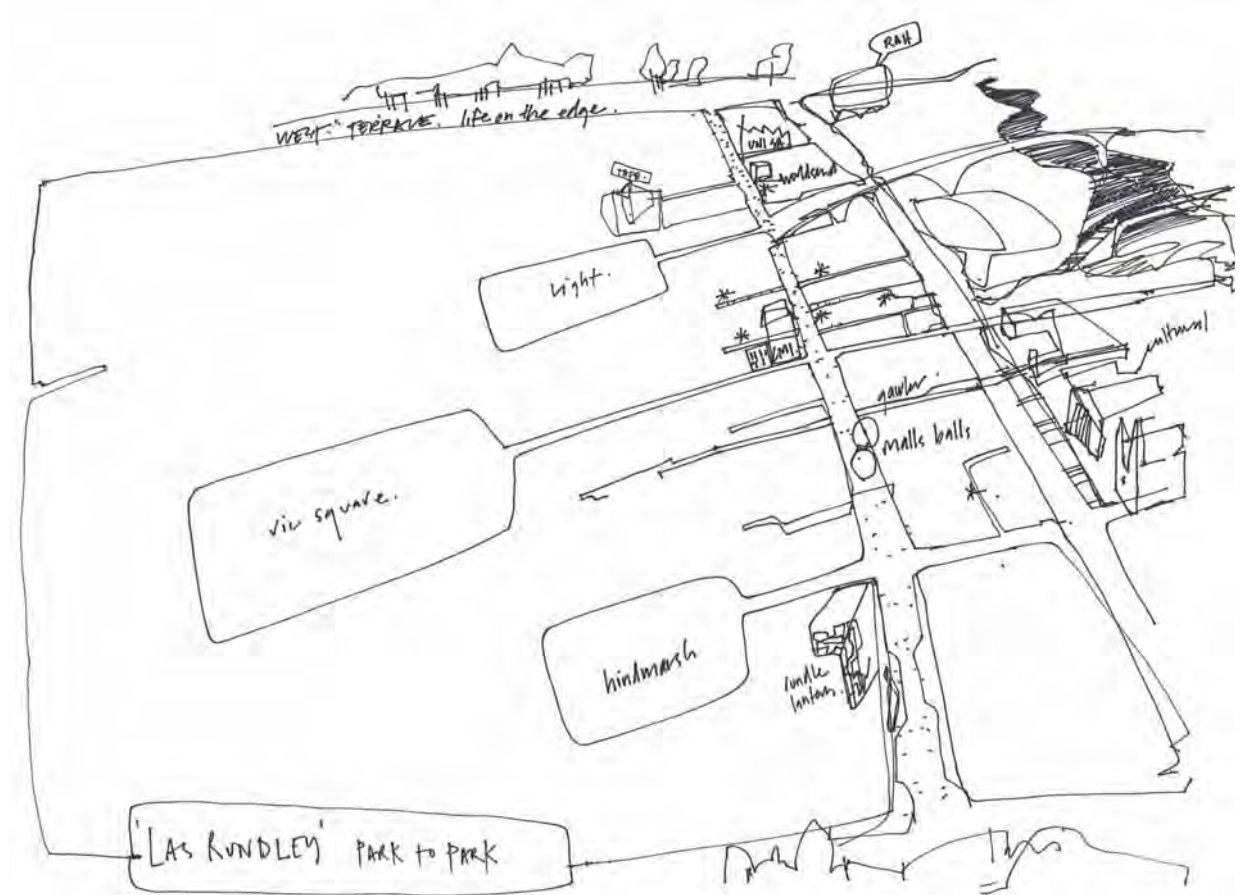 RAH
WEST TERRACE. life on the edge.
UNI SA
TAFE.
worldsend
light.
cultural
gawler
malls balls
vic square.
hindmarsh
rundle
lantern.
'LAS RUNDLEY' PARK to PARK